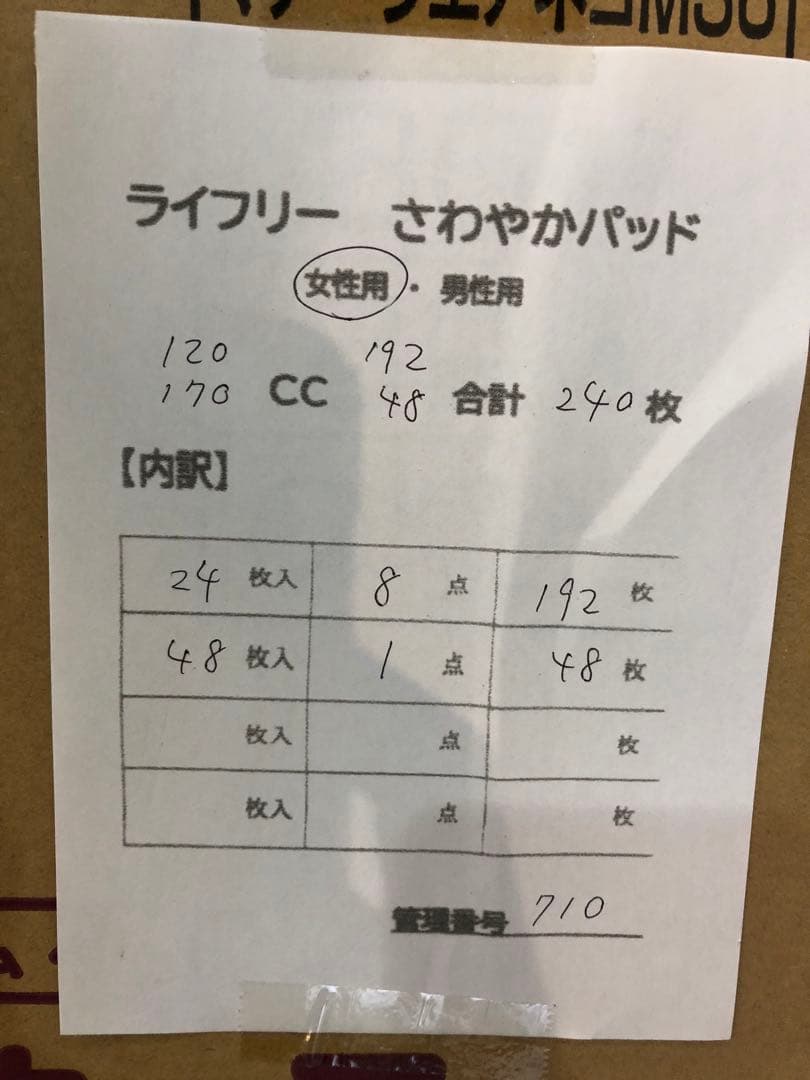 ライフリー さわやかパッド
女性用・男性用
120 192
170 CC 48 合計 240 枚
【内訳】
24 枚入 8 点 192 枚
48 枚入 1 点 48 枚
枚入 点 枚
枚入 点 枚
管理番号 710